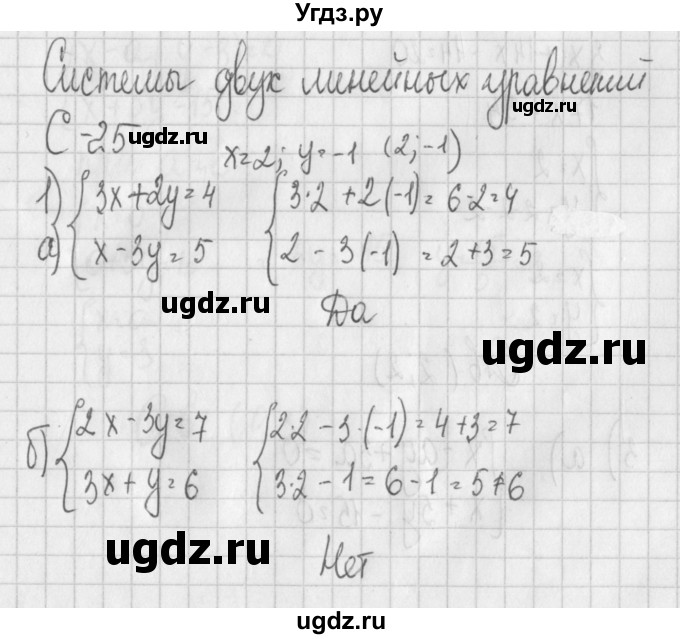 Угдз.ру
Системы двух линейных уравнений
ugdz.ru
С-25 ugdz.ru x=2; y=-1 (2;-1)
1) { 3x+2y=4 { 3·2 +2(-1)=6-2=4
а) { x-3y=5 { 2 - 3(-1) =2+3=5
ugdz.ru Да
ugdz.ru
б) { 2x-3y=7 { 2·2 -3·(-1)=4+3=7
{ 3x+y=6 { 3·2 -1=6-1=5≠6
ugdz.ru Нет
ugdz.ru